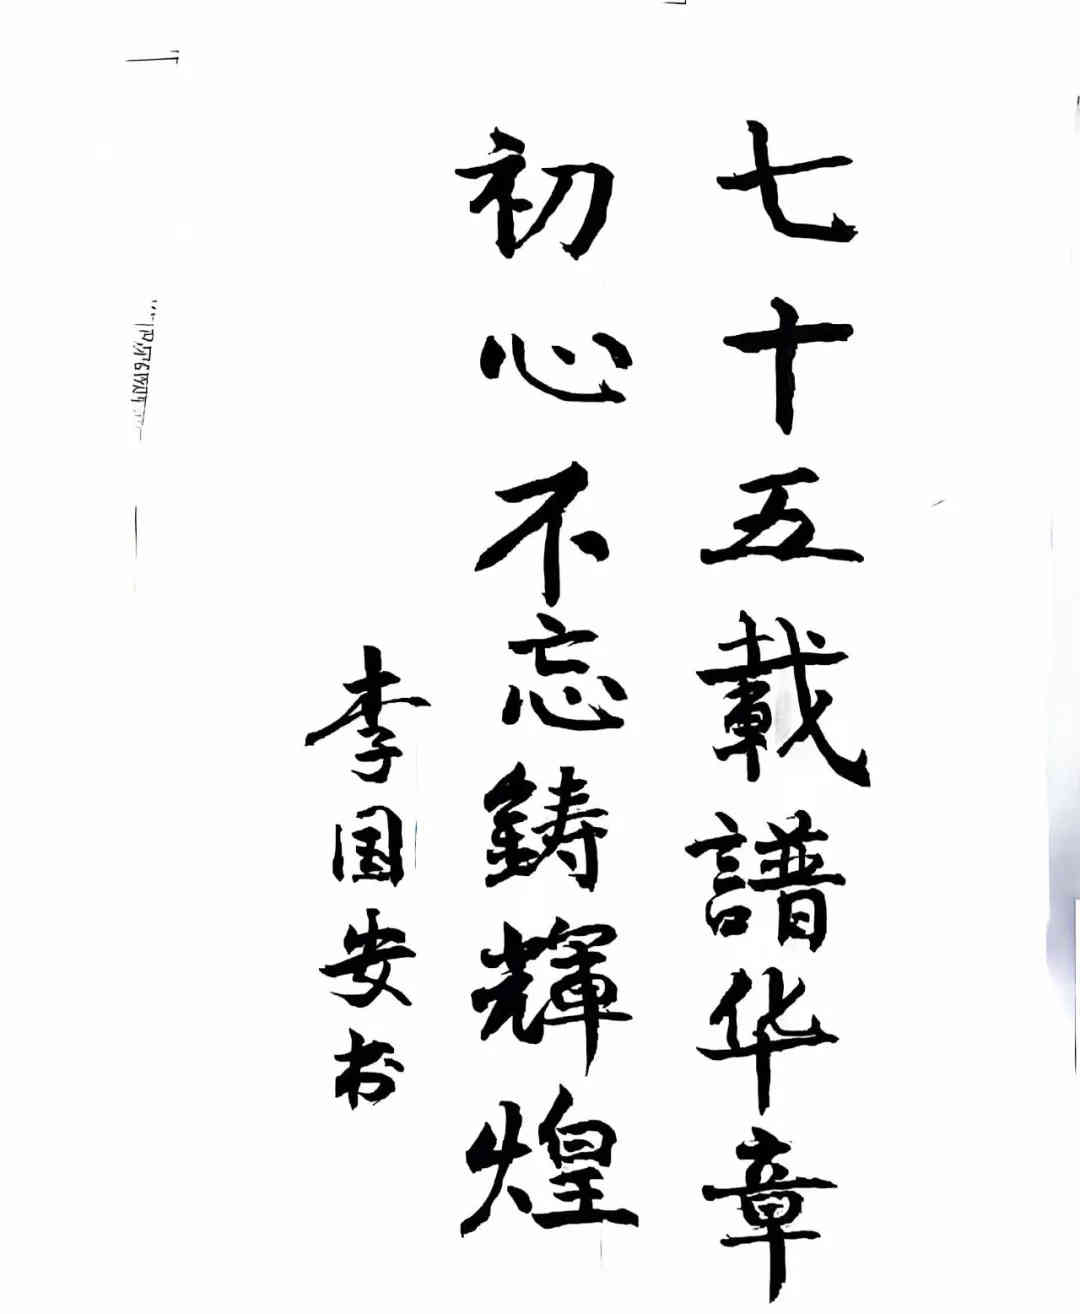 七十五載譜华章
初心不忘鑄輝煌
李国安书